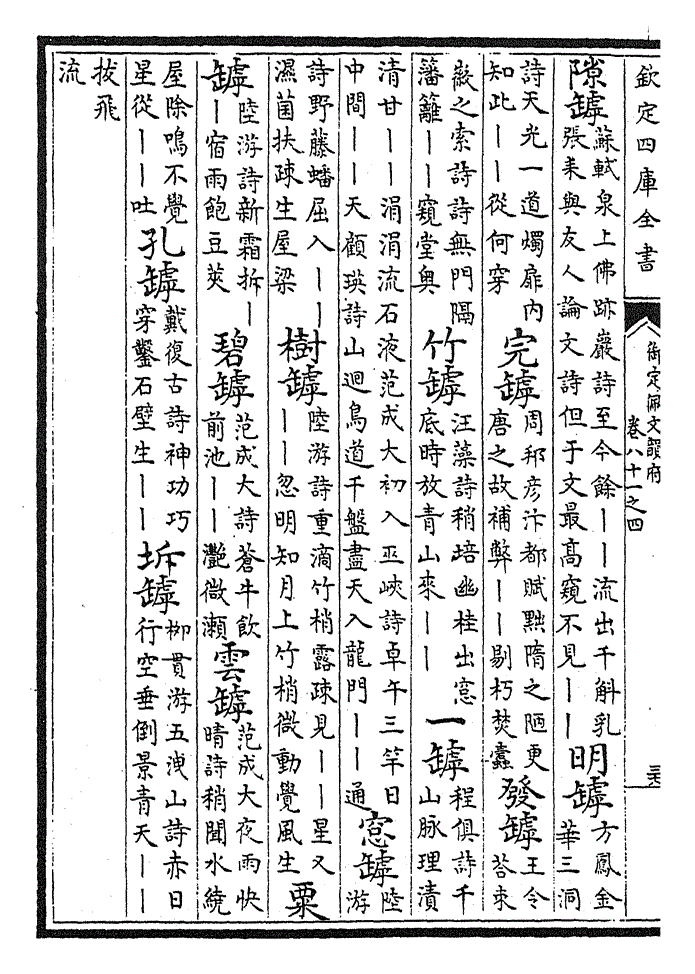 欽定四庫全書
御定佩文韻府
卷八十一之四
隙罅
蘇軾泉上佛跡巖詩至今餘丨丨流出千斛乳
張耒與友人論文詩但于文最高窺不見丨丨
明罅
方鳳金
華三洞
詩天光一道燭扉内
知此丨丨從何穿
完罅
周邦彥汴都賦黜隋之陋更
唐之故補弊丨丨剔朽焚蠹
發罅
王令
答束
徽之索詩詩無門隔
藩籬丨丨窺堂奥
竹罅
汪藻詩稍培幽桂出窓
底時放青山來丨丨
一罅
程俱詩千
山脉理漬
清甘丨丨涓涓流石液范成大初入巫峽詩卓午三竿日
中間丨丨天顧瑛詩山迴鳥道千盤盡天入龍門丨丨通
窓罅
陸
游
詩野藤蟠屈入丨丨
濕菌扶疎生屋梁
樹罅
陸游詩重滴竹梢露疎見丨丨星又
丨丨忽明知月上竹梢微動覺風生
粟
罅
陸游詩新霜拆丨
丨宿雨飽豆莢
碧罅
范成大詩蒼牛飲
前池丨丨灔微瀬
雲罅
范成大夜雨快
晴詩稍聞水繞
屋除鳴不覺
星從丨丨吐
孔罅
戴復古詩神功巧
穿鑿石壁生丨丨
坼罅
柳貫游五洩山詩赤日
行空垂倒景青天丨丨
拔飛
流